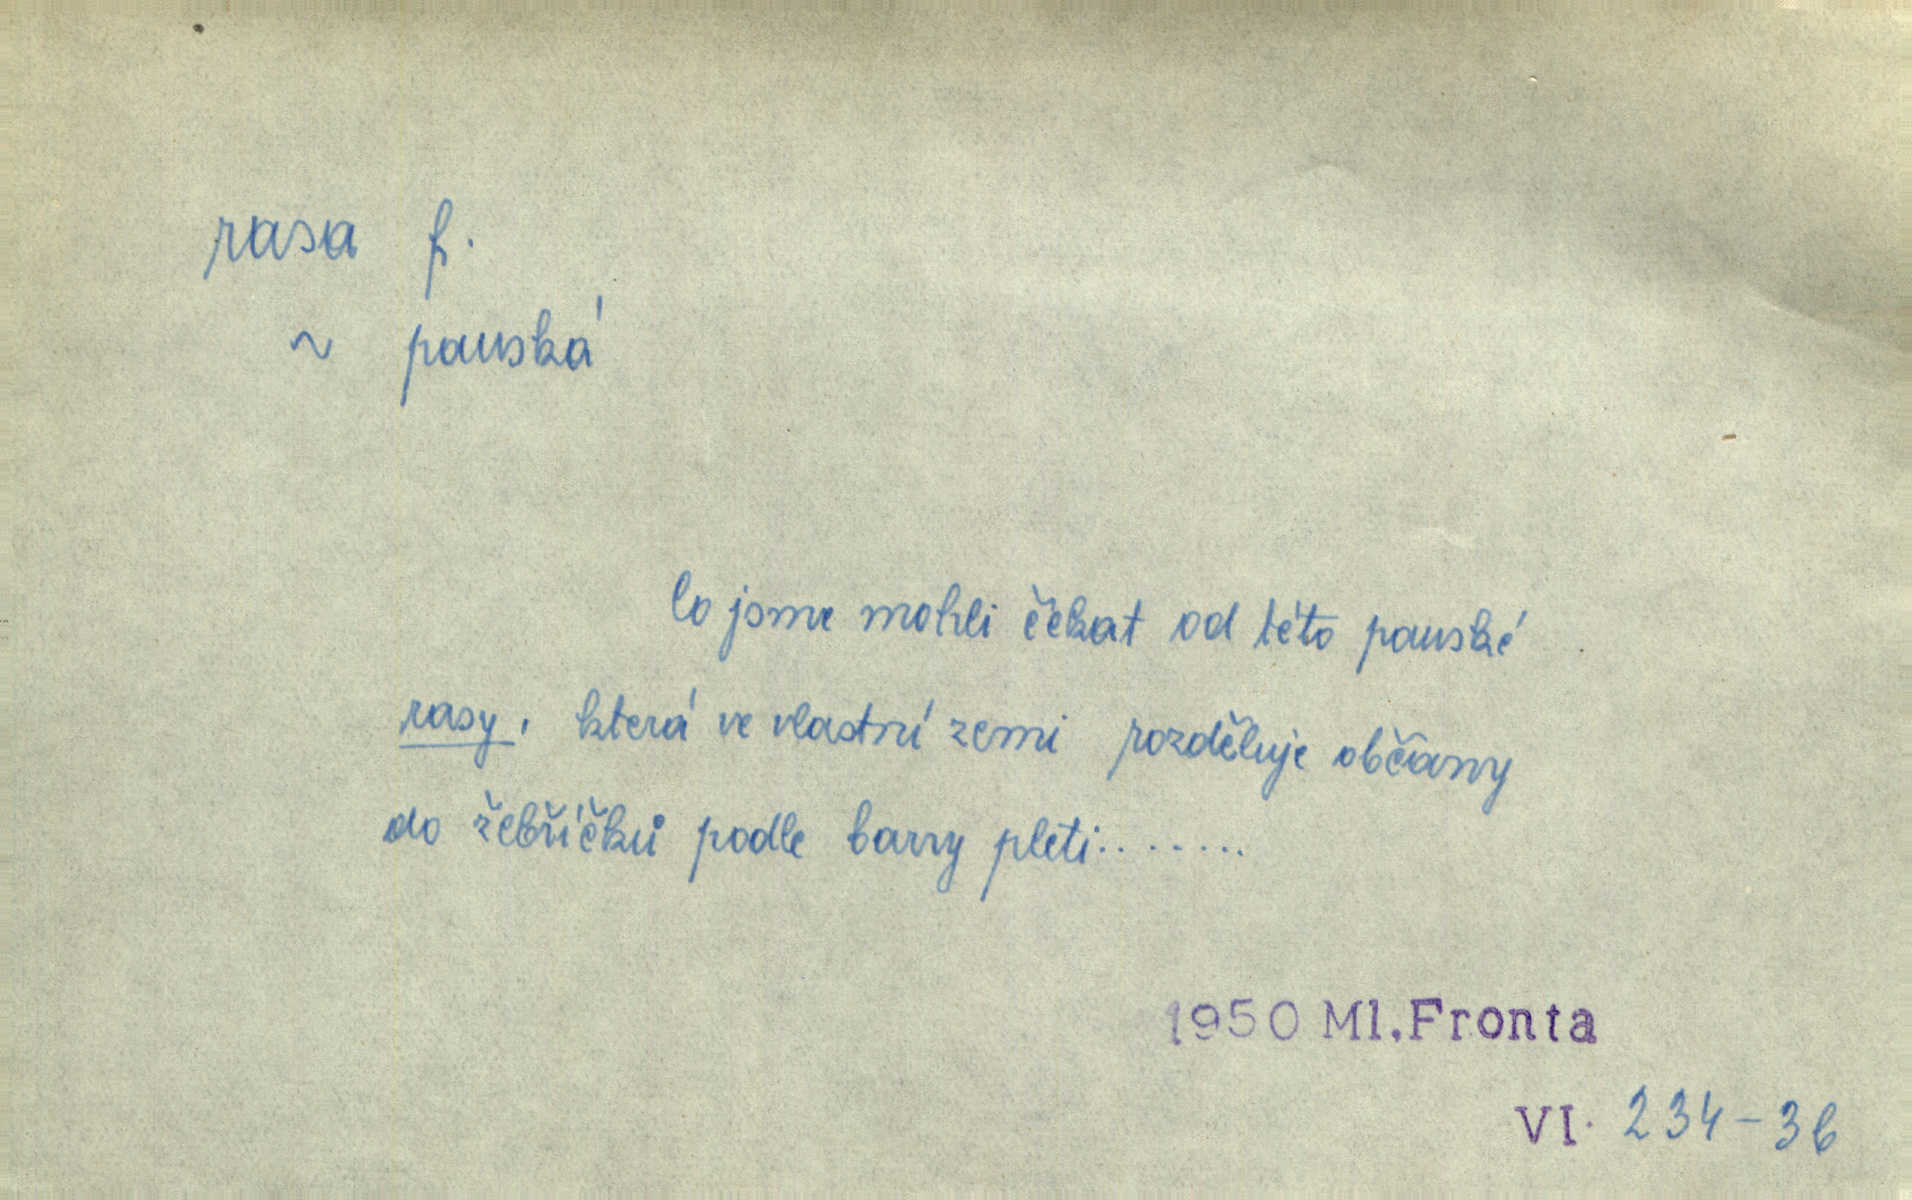 rasa f.
~ panská
Co jsme mohli čekat od této panské
rasy, která ve vlastní zemi rozděluje občany
do žebříčků podle barvy pleti........
1950 Ml.Fronta
VI. 234-3b